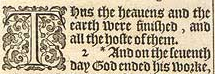 THus the heauens and the
earth were finished, and
all the hoste of them.
2 *And on the seuenth
day God ended his worke,